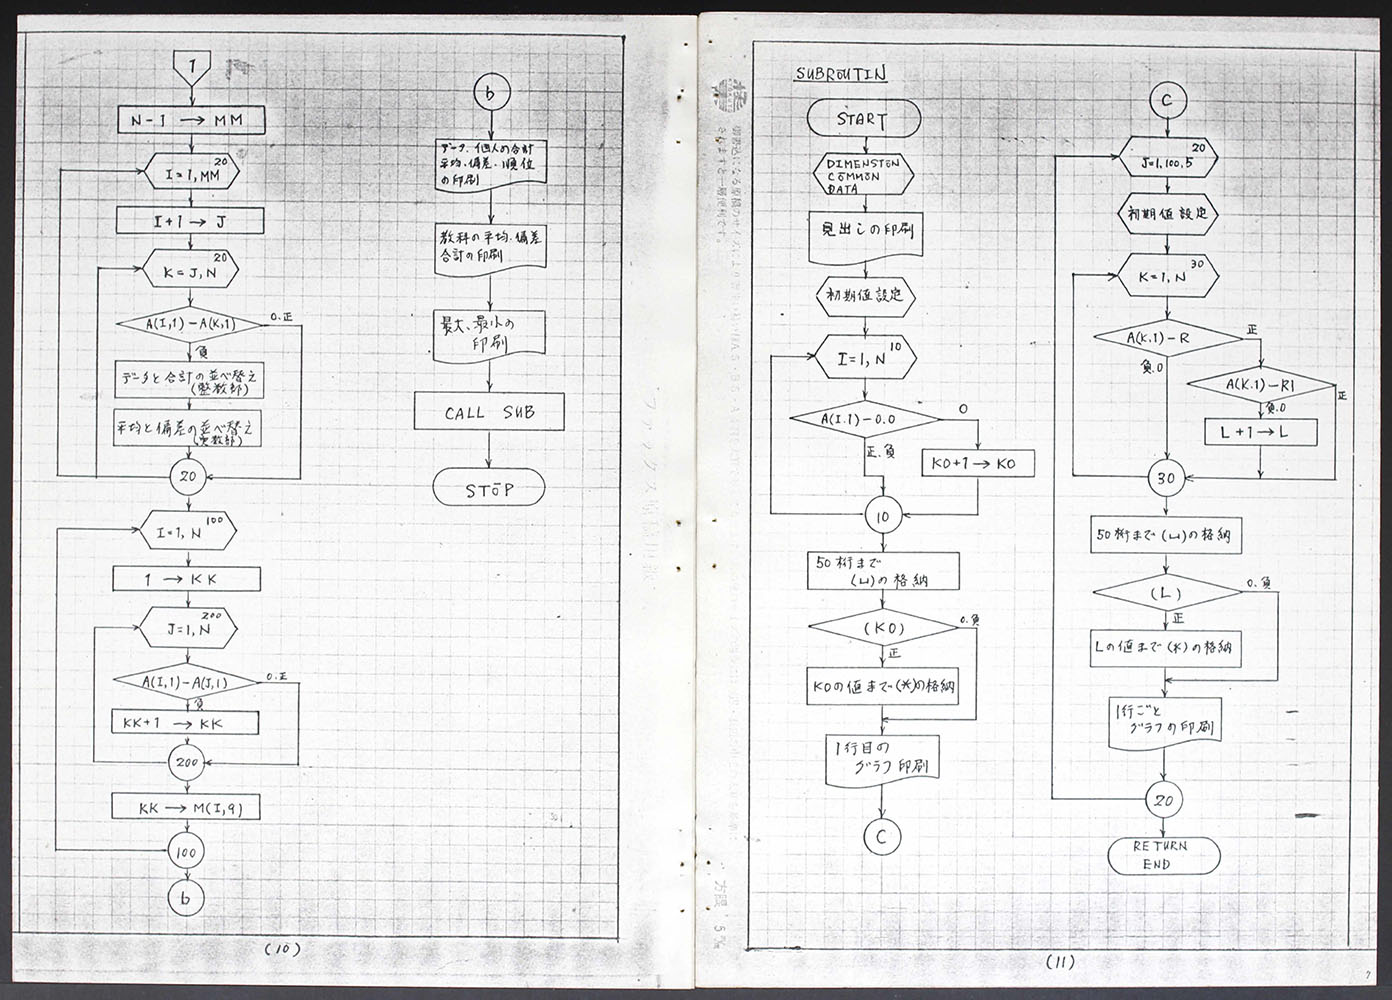 1
N-1 → MM
20
I=1, MM
I+1 → J
20
K=J, N
A(I,1)-A(K,1)
0.正
負
データと合計の並べ替え
(整数部)
平均と偏差の並べ替え
(実数部)
20
100
I=1, N
1 → KK
200
J=1, N
A(I,1)-A(J,1)
0.正
負
KK+1 → KK
200
KK → M(I,9)
100
b
(10)
b
データ、個人の合計
平均・偏差・順位
の印刷
教科の平均・偏差
合計の印刷
最大、最小の
印刷
CALL SUB
STOP
SUBROUTIN
START
DIMENSION
COMMON
DATA
見出しの印刷
初期値設定
10
I=1, N
A(I.1)-0.0
0
正.負
K0+1 → K0
10
50桁まで
(⊔)の格納
(K0)
0.負
正
K0の値まで(*)の格納
1行目の
グラフ印刷
C
C
20
J=1,100,5
初期値設定
30
K=1, N
A(K.1)-R
正
負.0
A(K.1)-R1
正
負.0
L+1→L
30
50桁まで(⊔)の格納
(L)
0.負
正
Lの値まで(*)の格納
1行ごと
グラフの印刷
20
RETURN
END
(11)
7